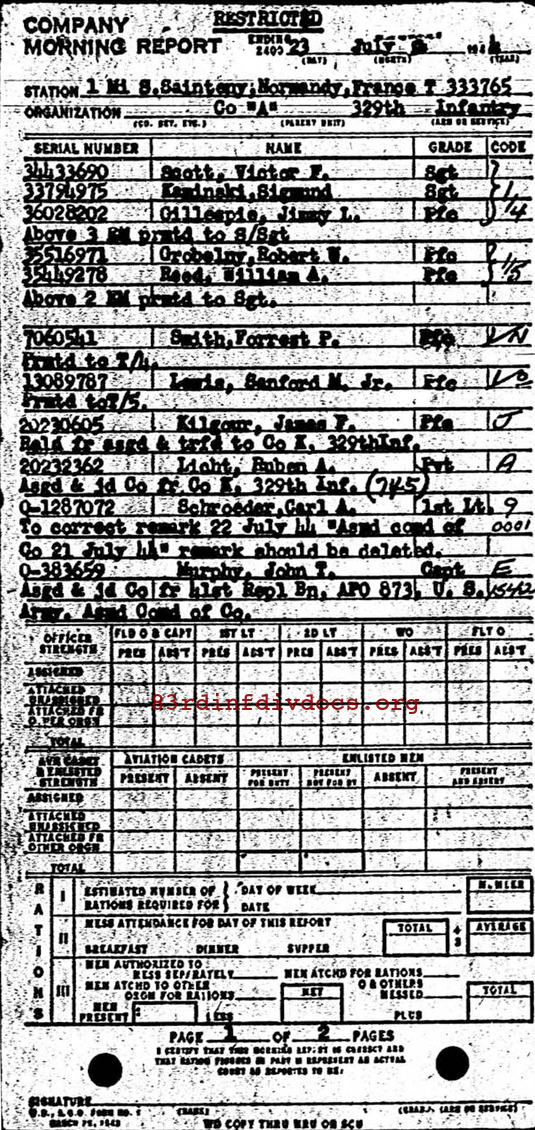 COMPANY RESTRICTED
MORNING REPORT ENDING 2400 23 July
(DAY) (MONTH) (YEAR)
STATION 1 Mi S. Sainteny, Normandy, France T 333765
ORGANIZATION Co "A" 329th Infantry
(CO. DET. ETC.) (PARENT UNIT) (ARM OR SERVICE)
SERIAL NUMBER NAME GRADE CODE
34433690 Scott, Victor F. Sgt
33794975 Kaminski, Sigmund Sgt 1
36028202 Gillespie, Jimmy L. Pfc 14
Above 3 EM prmtd to S/Sgt
35516971 Grobelny, Robert W. Pfc
35449278 Reed, William A. Pfc 15
Above 2 EM prmtd to Sgt.
7060541 Smith, Forrest P. Pfc
Prmtd to T/4.
13089787 Lewis, Sanford M. Jr. Pfc
Prmtd to T/5.
20230605 Kilgour, James F. Pfc J
Reld fr asgd & trfd to Co K, 329thInf.
20232362 Licht, Ruben A. Pvt A
Asgd & jd Co fr Co K, 329th Inf. (745)
O-1287072 Schroeder, Carl A. 1st Lt 9
To correct remark 22 July 44 "Asmd comd of 0001
Co 21 July 44" remark should be deleted.
O-383659 Murphy, John T. Capt E
Asgd & jd Co fr 41st Repl Bn, APO 873, U. S. 1542
Army. Asmd Comd of Co.
OFFICER STRENGTH FLD O & CAPT 1ST LT 2D LT WO FLT O
PRES ABS'T PRES ABS'T PRES ABS'T PRES ABS'T PRES ABS'T
ASSIGNED
ATTACHED UNASSIGNED
ATTACHED FR O.PER ORGN
83rdinfdivdocs.org
TOTAL
AVN CADET & ENLISTED STRENGTH AVIATION CADETS ENLISTED MEN
PRESENT ABSENT PRESENT FOR DUTY PRESENT NOT FOR DY ABSENT PRESENT AND ABSENT
ASSIGNED
ATTACHED UNASSIGNED
ATTACHED FR OTHER ORGN
TOTAL
RATIONS
I ESTIMATED NUMBER OF RATIONS REQUIRED FOR DAY OF WEEK DATE NUMBER
II MESS ATTENDANCE FOR DAY OF THIS REPORT TOTAL AVERAGE
BREAKFAST DINNER SUPPER 3
III MEN AUTHORIZED TO MESS SEPARATELY MEN ATCHD FOR RATIONS
MEN ATCHD TO OTHER ORGN FOR RATIONS NET O & OTHERS MESSED TOTAL
MEN PRESENT LESS PLUS
PAGE 1 OF 2 PAGES
I CERTIFY THAT THIS MORNING REPORT IS CORRECT AND
THAT RATION FIGURES IN PART III REPRESENT AN ACTUAL
COUNT AS REPORTED TO ME:
SIGNATURE
W.D., A.G.O. FORM NO. 1 (NAME) (GRADE) (ARM OR SERVICE)
MARCH 15, 1943 WD COPY THRU MRU OR SCU